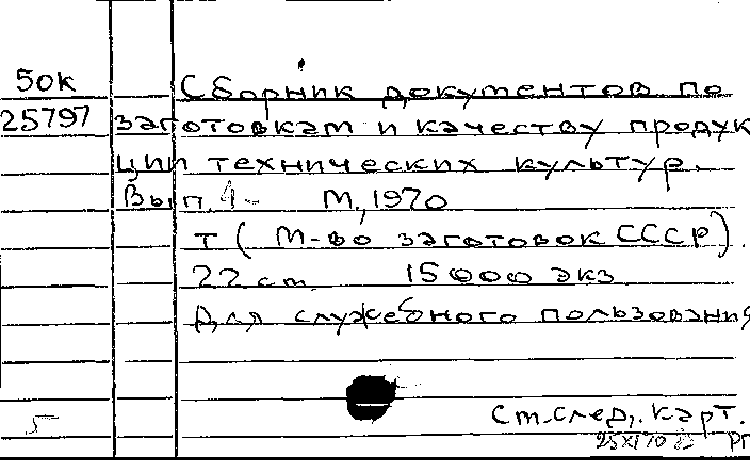 50к
25797
Сборник документов по
заготовкам и качеству продук
ции технических культур.
Вып. 1- М, 1970
т (М-во заготовок СССР).
22 cm. 15000 экз.
Для служебного пользования
5
См. след. карт.
25 XI 70